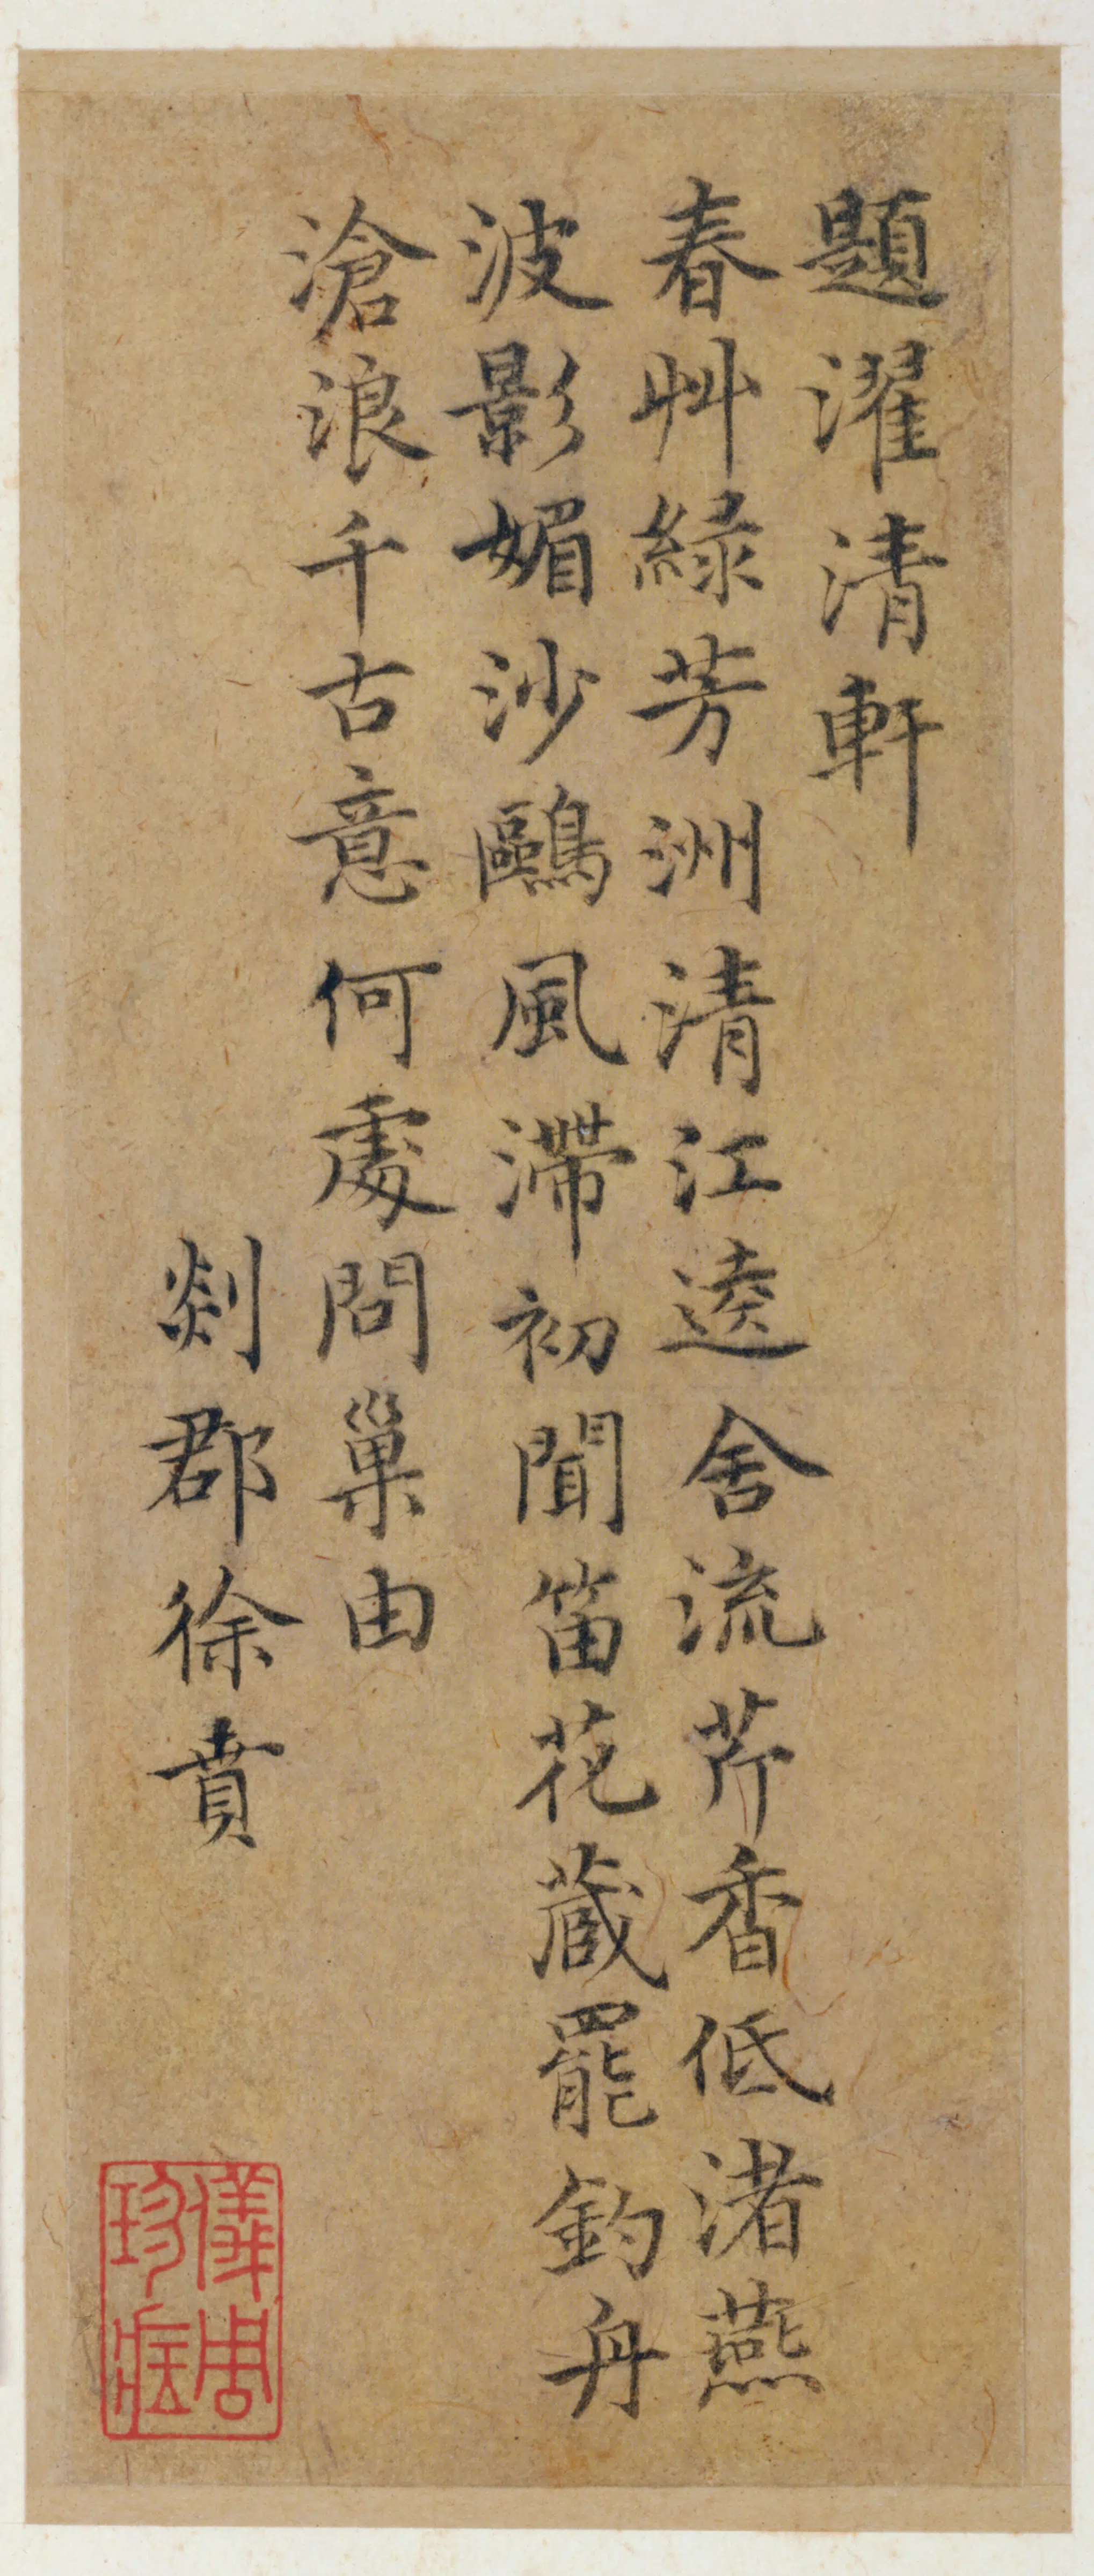 題濯清軒
春艸緑芳洲清江逵舍流芹香低渚燕
波影媚沙鷗風滯初聞笛花藏罷釣舟
滄浪千古意何處問巢由
剡郡徐賁
儀周
珍藏